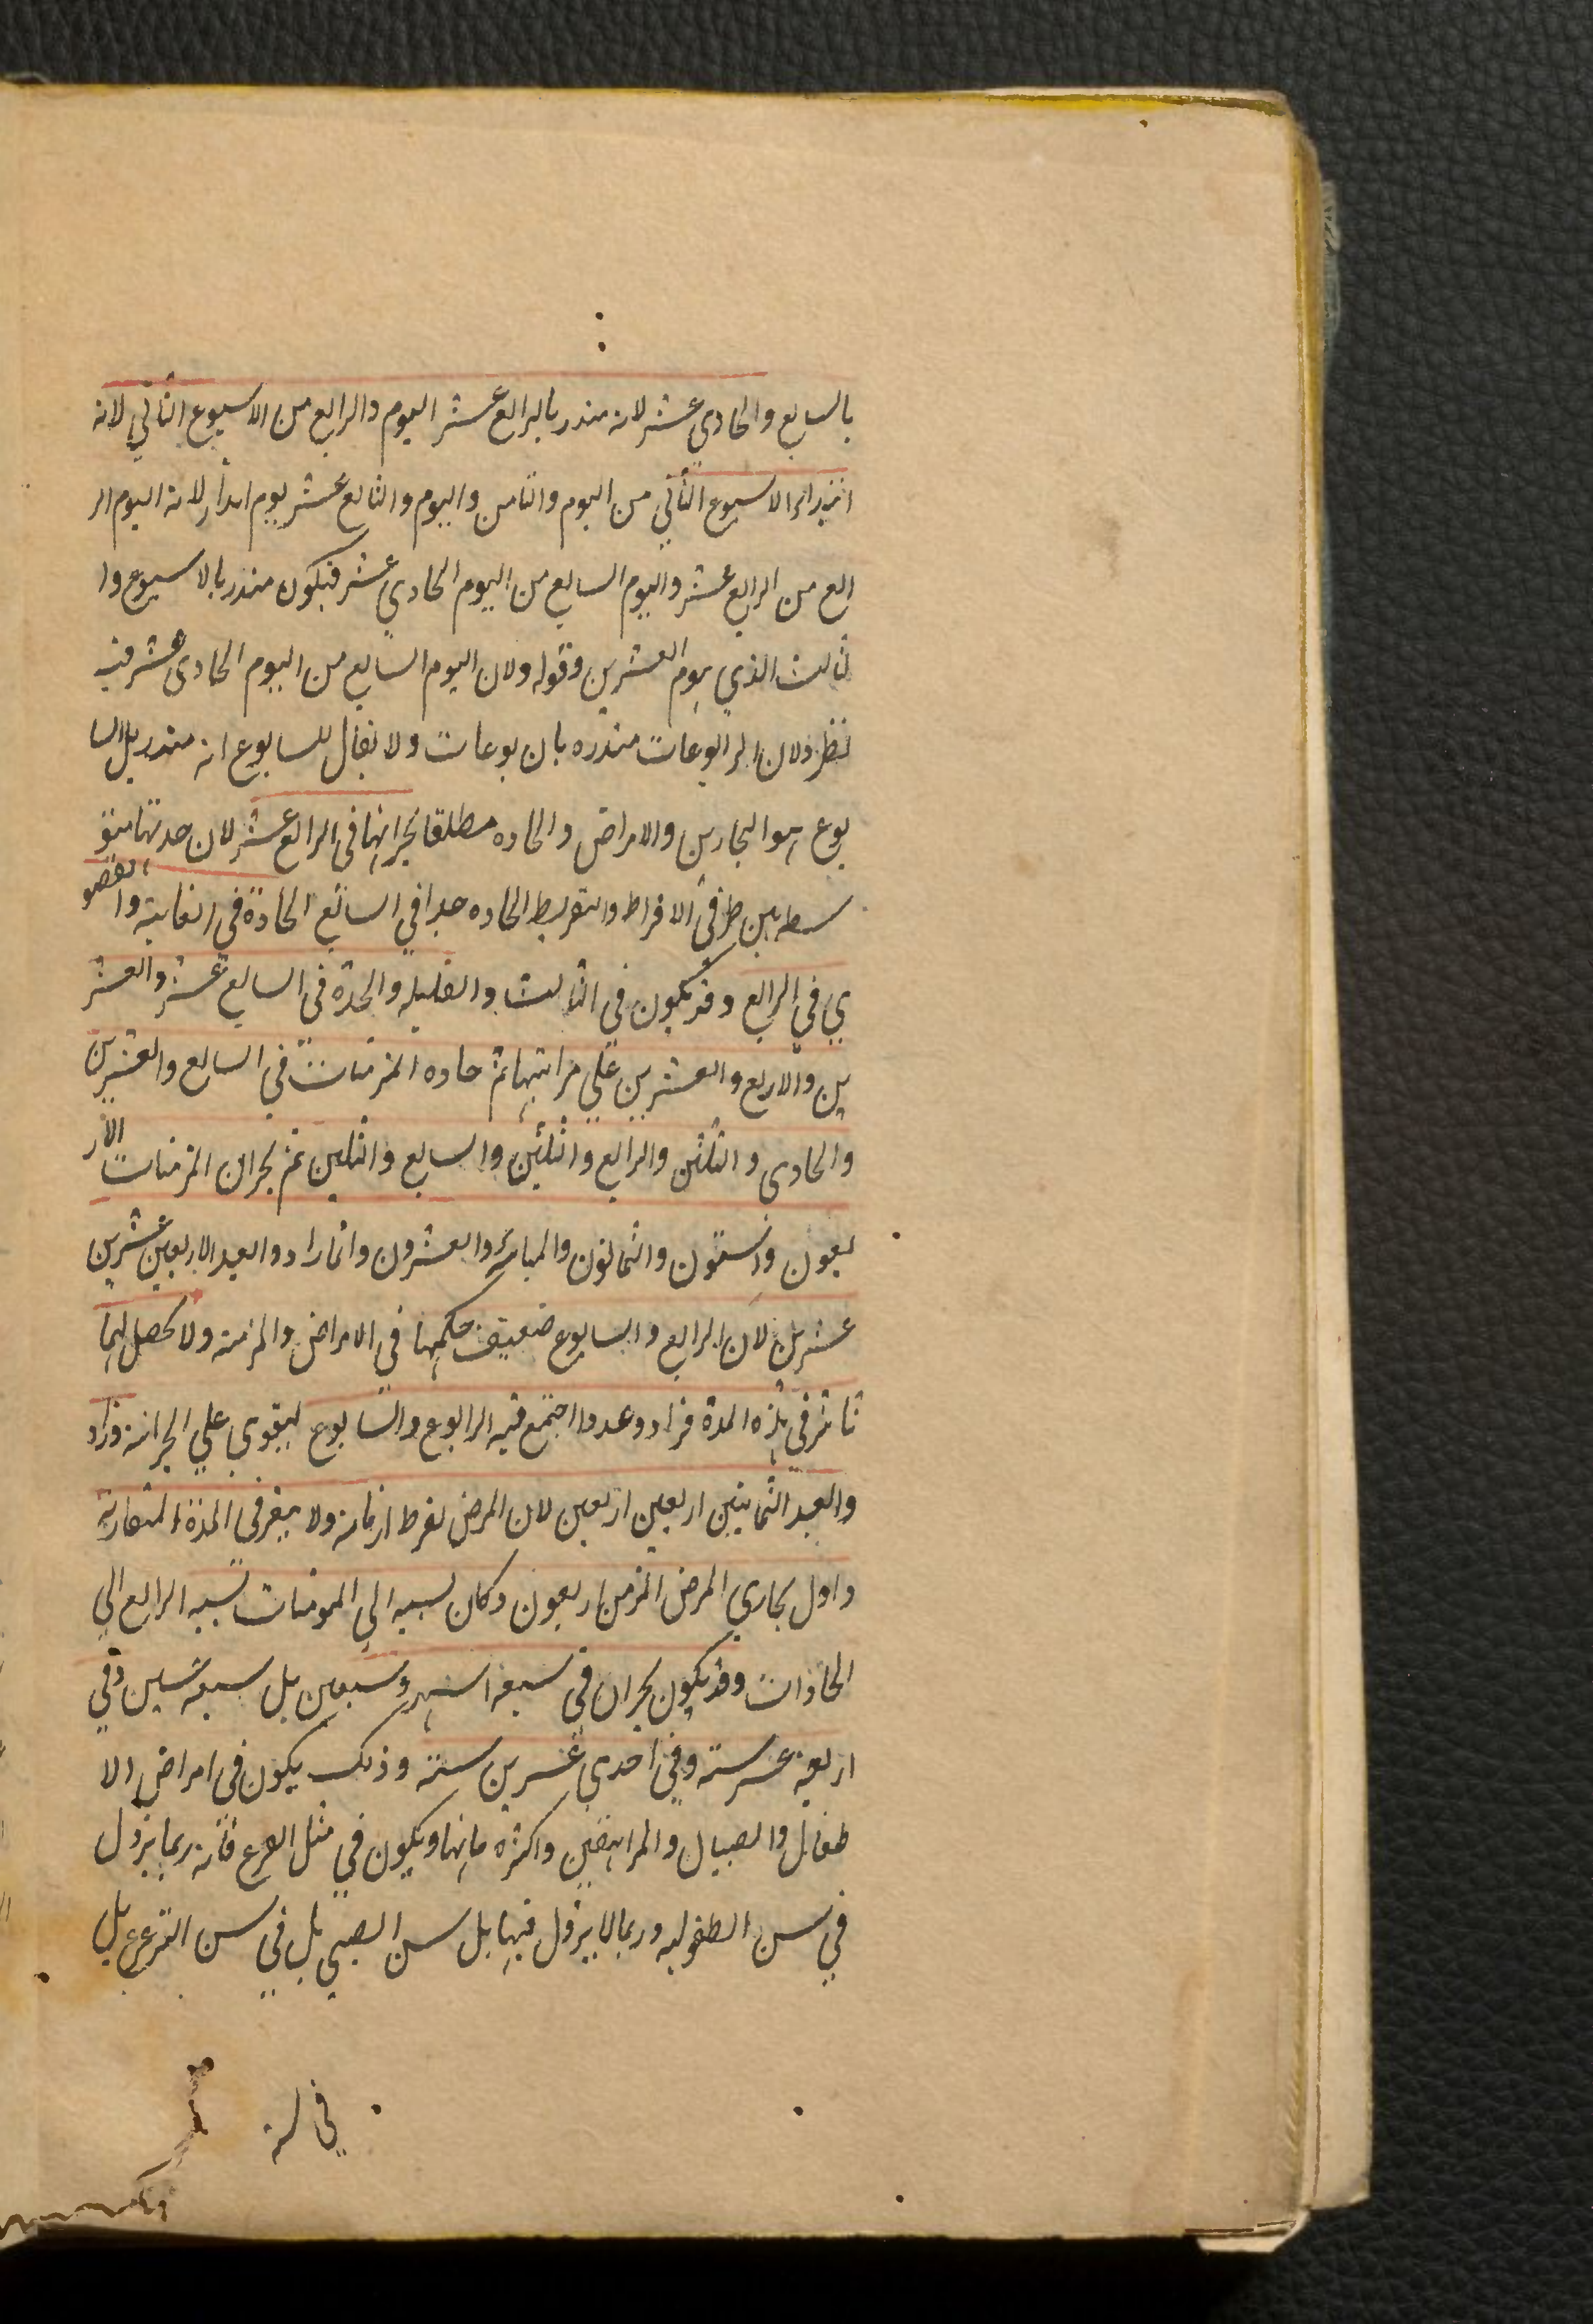 بالسابع والحادي عشر لانه منذر بالرابع عشر اليوم والرابع من الاسبوع الثاني لانه
انذر الاسبوع الثاني من اليوم والثامن واليوم والسابع عشر يوم انذار لانه اليوم الر
ابع من الرابع عشر واليوم السابع من اليوم الحادي عشر فيكون منذر بالاسبوع وا
لثالث الذي يوم العشرين وقوله ولان اليوم السابع من اليوم الحادي عشر فيه
نظر ولان الرابوعات منذره بان بوعات ولا يقال للسابوع انه منذر بل السا
بوع هو البحارين والامراض والحاده مطلقا بحرانها في الرابع عشر لان حدتها متو
سطه بين طرفي الافراط والتفريط الحاده جدا في السابع الحادة في الغاية والقصو
ي في الرابع وقد يكون في الثالث والقليله والحدة في السابع عشر والعشر
ين والاربع والعشرين علي مراتبها ثم حاده المزمنات في السابع والعشرين
والحادي والثلثن والرابع والثلثين والسابع والثلين ثم بحران المزمنات الار
بعون والستون والثمانون والمائة والعشرون وانما زاد والعبد الاربعين عشرين
عشرين لان الرابع والسابوع ضعيف حكمها في الامراض والمزمنه ولا يحصل لهما
تاثر في هذه المدة فزاد وعدد ما اجتمع فيه الرابوع والسابوع ليقوي علي البحرانه وزاد
والعبد الثمانين اربعين اربعين لان المرض لفرط ازمانه ولا يتغير في المدة المتقاربة
واول بحاري المرض المزمن اربعون وكان نسبه الي المزمنات نسبه الرابع الي
الحادات وقد يكون بحران في سبعه اشهر وسبعين بل سبعة سنين وفي
اربعة عشر سنة وفي احدي عشرين سنة وذلك يكون في امراض الا
طفال والصبيان والمراهقين واكثره مانها ويكون في مثل الصرع فانه ربما يزول
في سن الطفوليه وربما لا يزول فيها بل سن الصبي بل في سن الترعرع بل
في سنه